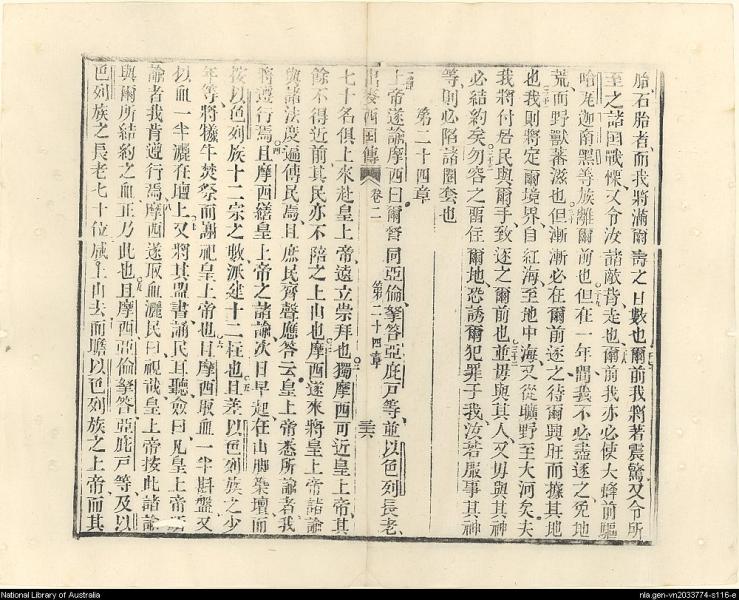 胎石胎者、而我將滿爾壽之日數也爾前我將著震驚又令所
至之諸国戰慄又令汝諸敵背走也爾前我亦必使大蜂前驅
哈尾迦南黑等族離爾前也但在一年間我不必盡逐之免地
荒而野獸蕃滋也但漸漸必在爾前逐之待爾興旺而據其地
也我則將定爾境界自紅海至地中海又從曠野至大河矣夫
我將付居民與爾手致逐之爾前也並毋與其人又毋與其神
必結約矣勿容之畱住爾地恐誘爾犯罪于我汝若服事其神
等則必陷諸圈套也
第二十四章
上帝遂諭摩西曰爾督同亞倫拏答亞庇戸等並以色列長老
出麥西国傳
卷二
第二十四章
三六
七十名俱上來赴皇上帝遠立崇拜也獨摩西可近皇上帝其
餘不得近前其民亦不陪之上山也摩西遂來將皇上帝諸諭
與諸法度遍傳民焉且庶民齊聲應答云皇上帝悉所諭者我
將遵行焉且摩西繕皇上帝之諸諭次日早起在山脚築壇而
按以色列族十二宗之數派建十二柱也且差以色列族之少
年等將犠牛焚祭而謝祀皇上帝也且摩西取血一半斟盤又
以血一半灑在壇上又將其盟書誦民耳聽僉曰凡皇上帝所
諭者我肯遵行焉摩西遂取血灑民曰視哉皇上帝按此諸諭
與爾所結約之血正乃此也且摩西亞倫拏答亞庇戸等及以
色列族之長老七十位咸上山去而瞻以色列族之上帝而其
National Library of Australia
nla.gen-vn2033774-s116-e